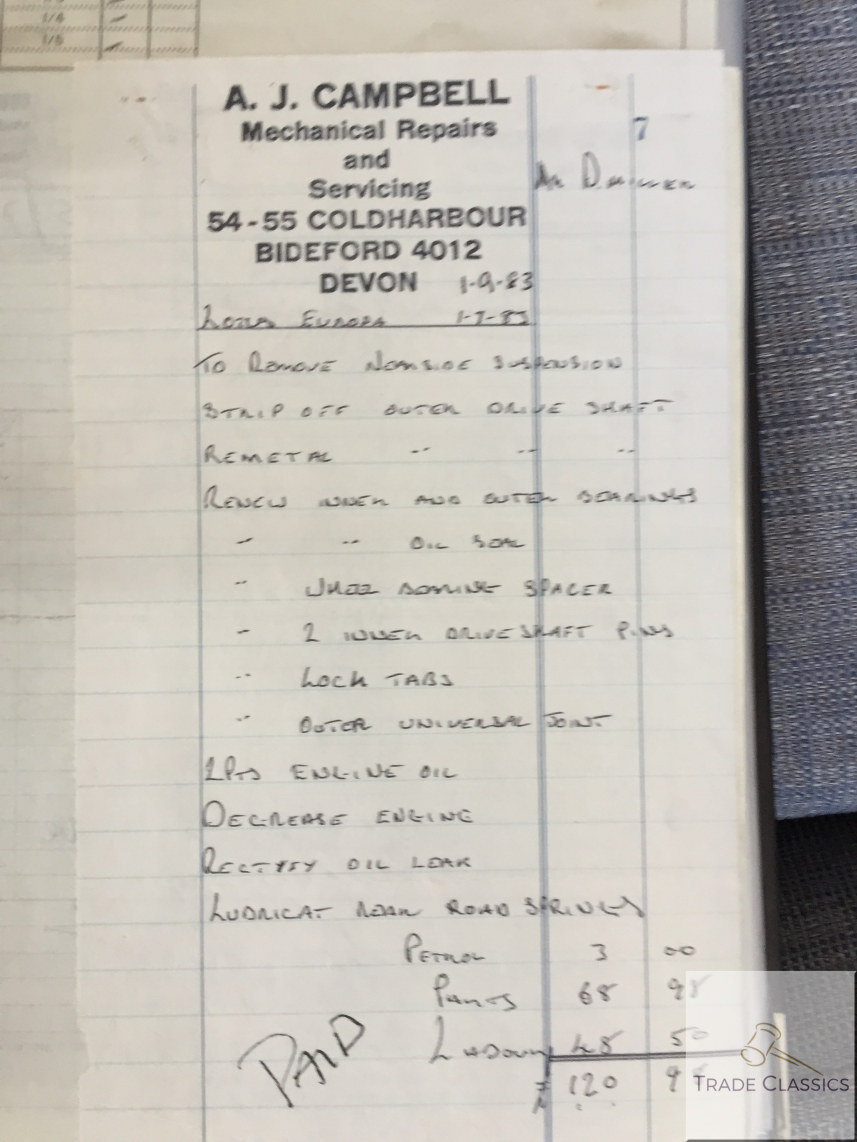 1/4
1/5
A. J. CAMPBELL
7
Mechanical Repairs
and
Servicing
54-55 COLDHARBOUR
BIDEFORD 4012
DEVON 1-9-83
LOTUS EUROPA
TO REMOVE NEARSIDE SUSPENSION
STRIP OFF OUTER DRIVE SHAFT
REMETAL -- -- --
RENEW INNER AND OUTER BEARINGS
- -- OIL SEAL
-- SPACER
- 2 INNER DRIVESHAFT PINS
-- LOCK TABS
-- OUTER UNIVERSAL JOINT
ENGINE OIL
DEGREASE ENGINE
RECTIFY OIL LEAK
LUBRICAT REAR ROAD SPRINGS
PETROL 3 00
PARTS 68 98
LABOUR 48 50
PAID
£ 120
TRADE CLASSICS